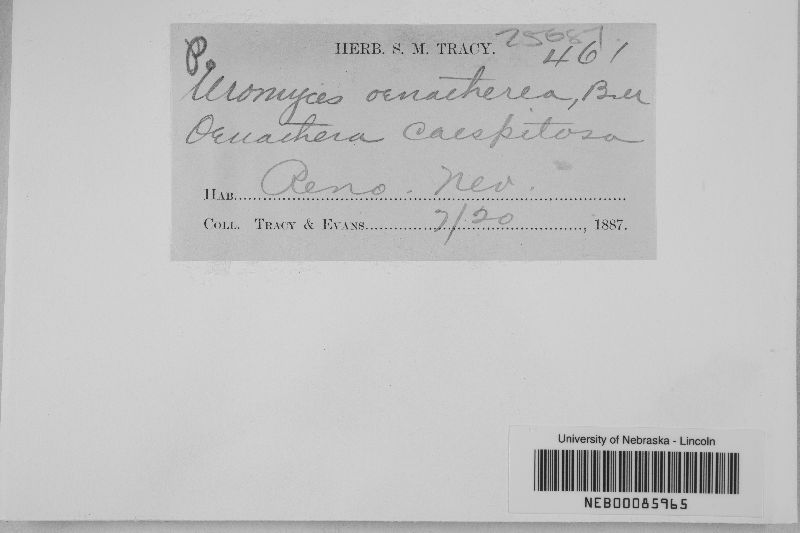 HERB. S. M. TRACY.
461
Uromyces oenotherea, Bur
Oenothera caespitosa
HAB. Reno. Nev.
COLL. TRACY & EVANS. 7/20, 1887.
University of Nebraska - Lincoln
NEB00085965